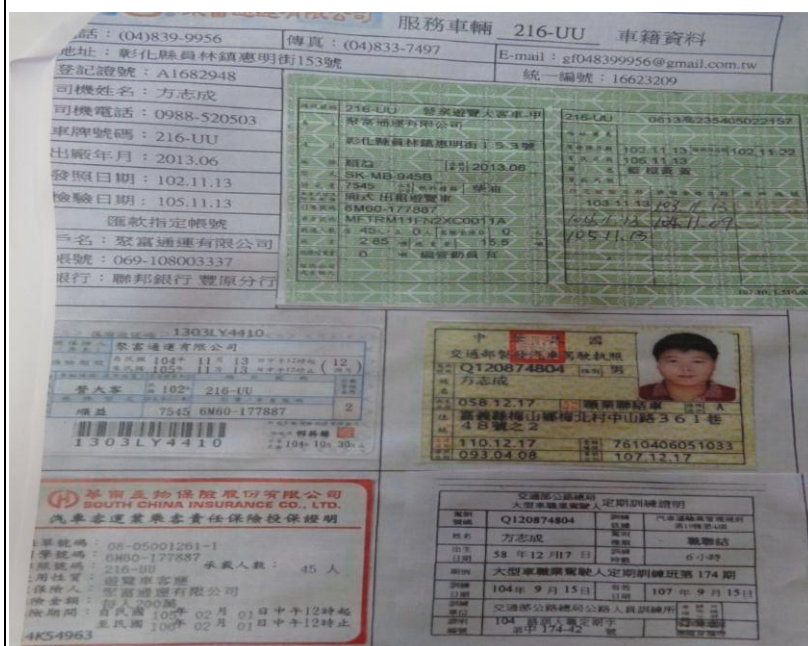 聚富通運有限公司 服務車輛 216-UU 車籍資料
電話：(04)839-9956 傳真：(04)833-7497 E-mail：gf048399956@gmail.com.tw
地址：彰化縣員林鎮惠明街153號 統一編號：16623209
登記證號：A1682948
司機姓名：方志成
司機電話：0988-520503
車牌號碼：216-UU
出廠年月：2013.06
發照日期：102.11.13
檢驗日期：105.11.13
匯款指定帳號
戶名：聚富通運有限公司
帳號：069-108003337
銀行：聯邦銀行 豐原分行
216-UU 營業遊覽大客車-甲
聚富通運有限公司
彰化縣員林鎮惠明街153號
順益 2013.06
SK-MB-945B
7545 柴油
廂式 出租遊覽車
6M60-177887
45 0 0
2.85 15.5
0
216-UU
102.11.13 102.11.22
105.11.13
103.11.13 103.11.13
105.11.13
1303LY4410
聚富通運有限公司
104年 11月 13日中午12時起
105年 11月 13日中午12時止 (12
營大客 102 216-UU
順益 7545 6M60-177887 2
1303LY4410
中華民國
交通部製發汽車駕駛執照
Q120874804 性別 男
方志成
058.12.17 職業聯結車 A
嘉義縣梅山鄉梅北村中山路361巷
48號之2
110.12.17 7610406051033
093.04.08 107.12.17
華南產物保險股份有限公司
SOUTH CHINA INSURANCE CO., LTD.
汽車客運業乘客責任保險投保證明
08-05001261-1
6M60-177887
216-UU 承載人數： 45 人
遊覽車客運
聚富通運有限公司
每人200萬
保險期間：自民國 105年 02月 01日中午12時起
至民國 106年 02月 01日中午12時止
4K54963
交通部公路總局
大型車職業駕駛人 定期訓練證明
Q120874804
姓名 方志成 職聯結
出生日期 58 年12 月17 日 訓練時數 6小時
大型車職業駕駛人定期訓練班第 174 期
訓練日期 104年 9 月 15日 有效日期 107 年 9 月 15日
訓練單位 交通部公路總局公路人員訓練所